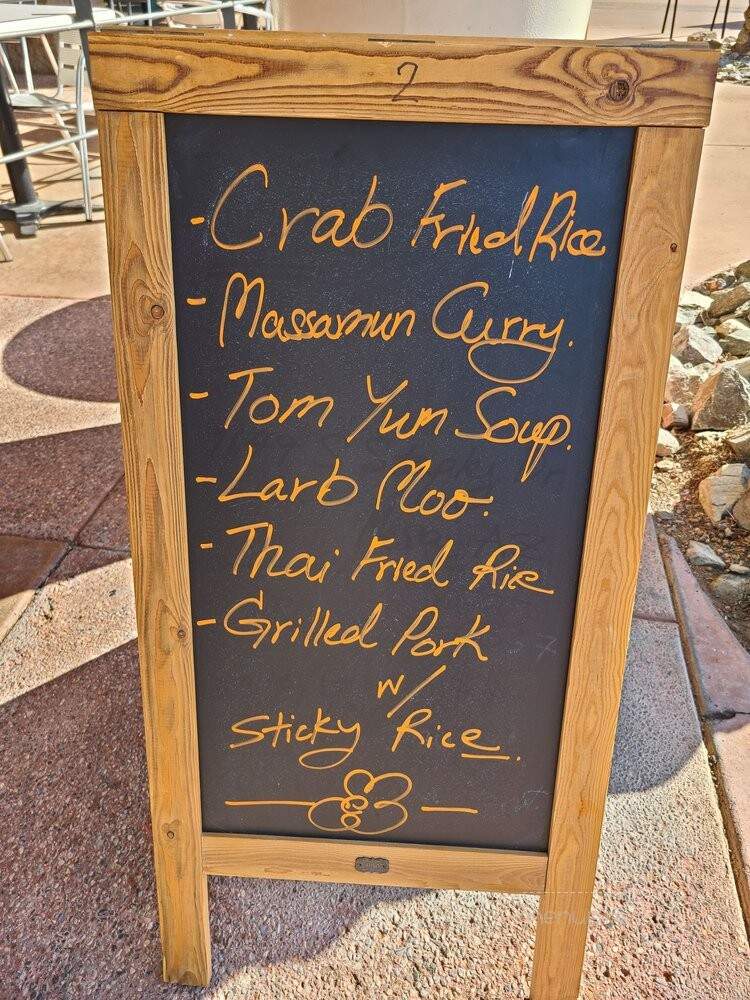 2
- Crab Fried Rice
- Massamun Curry.
- Tom Yum Soup.
- Larb Moo.
- Thai Fried Rice
- Grilled Pork
w/
Sticky Rice.